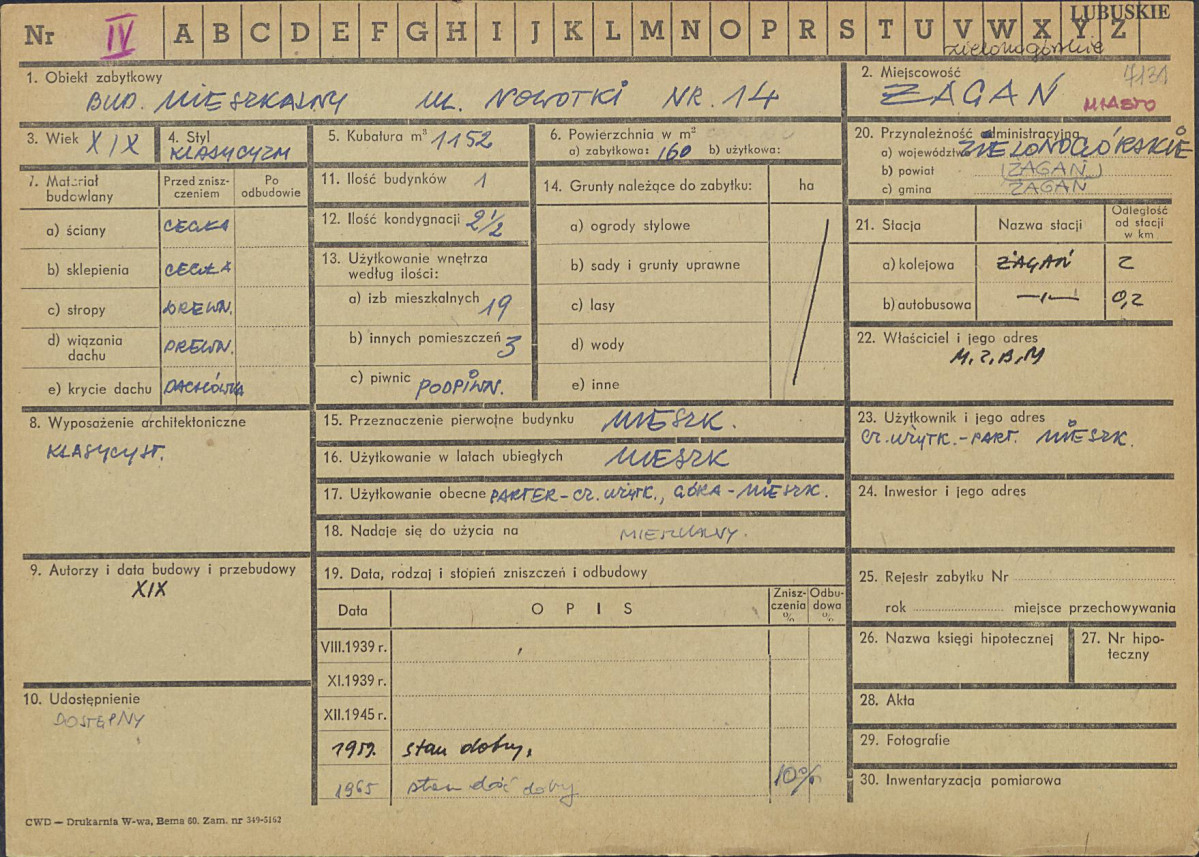 Nr IV A B C D E F G H I J K L M N O P R S T U V W X Y Z
LUBUSKIE
zielonogórskie
1. Obiekt zabytkowy
BUD. MIESZKALNY UL. NOWOTKI NR. 14
2. Miejscowość
7131
ŻAGAŃ MIASTO
3. Wiek XIX
4. Styl
KLASYCYZM
5. Kubatura m³ 1152
6. Powierzchnia w m²
a) zabytkowa: 160 b) użytkowa:
20. Przynależność administracyjna
a) województwo ZIELONOGÓRSKIE
b) powiat (ŻAGAŃ)
c) gmina ŻAGAŃ
7. Materiał budowlany
Przed zniszczeniem
Po odbudowie
a) ściany CEGŁA
b) sklepienia CEGŁA
c) stropy DREWN.
d) wiązania dachu DREWN.
e) krycie dachu DACHÓWKA
11. Ilość budynków 1
12. Ilość kondygnacji 2 1/2
13. Użytkowanie wnętrza
według ilości:
a) izb mieszkalnych 19
b) innych pomieszczeń 3
c) piwnic PODPIWN.
14. Grunty należące do zabytku: ha
a) ogrody stylowe
b) sady i grunty uprawne
c) lasy
d) wody
e) inne
21. Stacja Nazwa stacji Odległość od stacji w km
a) kolejowa ŻAGAŃ 2
b) autobusowa —ı— 0,2
22. Właściciel i jego adres
M.Z.B.M
8. Wyposażenie architektoniczne
KLASYCYST.
15. Przeznaczenie pierwotne budynku MIESZK.
16. Użytkowanie w latach ubiegłych MIESZK
17. Użytkowanie obecne PARTER - CZ. UŻYTK., GÓRA - MIESZK.
18. Nadaje się do użycia na MIESZKALNY.
23. Użytkownik i jego adres
CZ. UŻYTK. - PART. MIESZK.
24. Inwestor i jego adres
9. Autorzy i data budowy i przebudowy
XIX
10. Udostępnienie
DOSTĘPNY
19. Data, rodzaj i stopień zniszczeń i odbudowy
Data OPIS Zniszczenia % Odbudowa %
VIII.1939 r.
XI.1939 r.
XII.1945 r.
1959. stan dobry.
1965 stan dość dobry 10%
25. Rejestr zabytku Nr
rok miejsce przechowywania
26. Nazwa księgi hipotecznej
27. Nr hipoteczny
28. Akta
29. Fotografie
30. Inwentaryzacja pomiarowa
CWD — Drukarnia W-wa, Bema 60. Zam. nr 349-5162